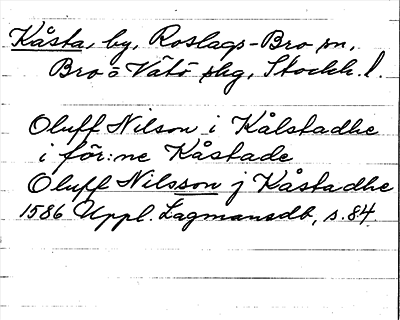 Kåsta, by, Roslags-Bro sn,
Bro o Vätö skg, Stockh. l.
Oluff Nilson i Kålstadhe
i för:ne Kåstade
Oluff Nilsson j Kåstadhe
1586 Uppl. Lagmansdb, s. 84.